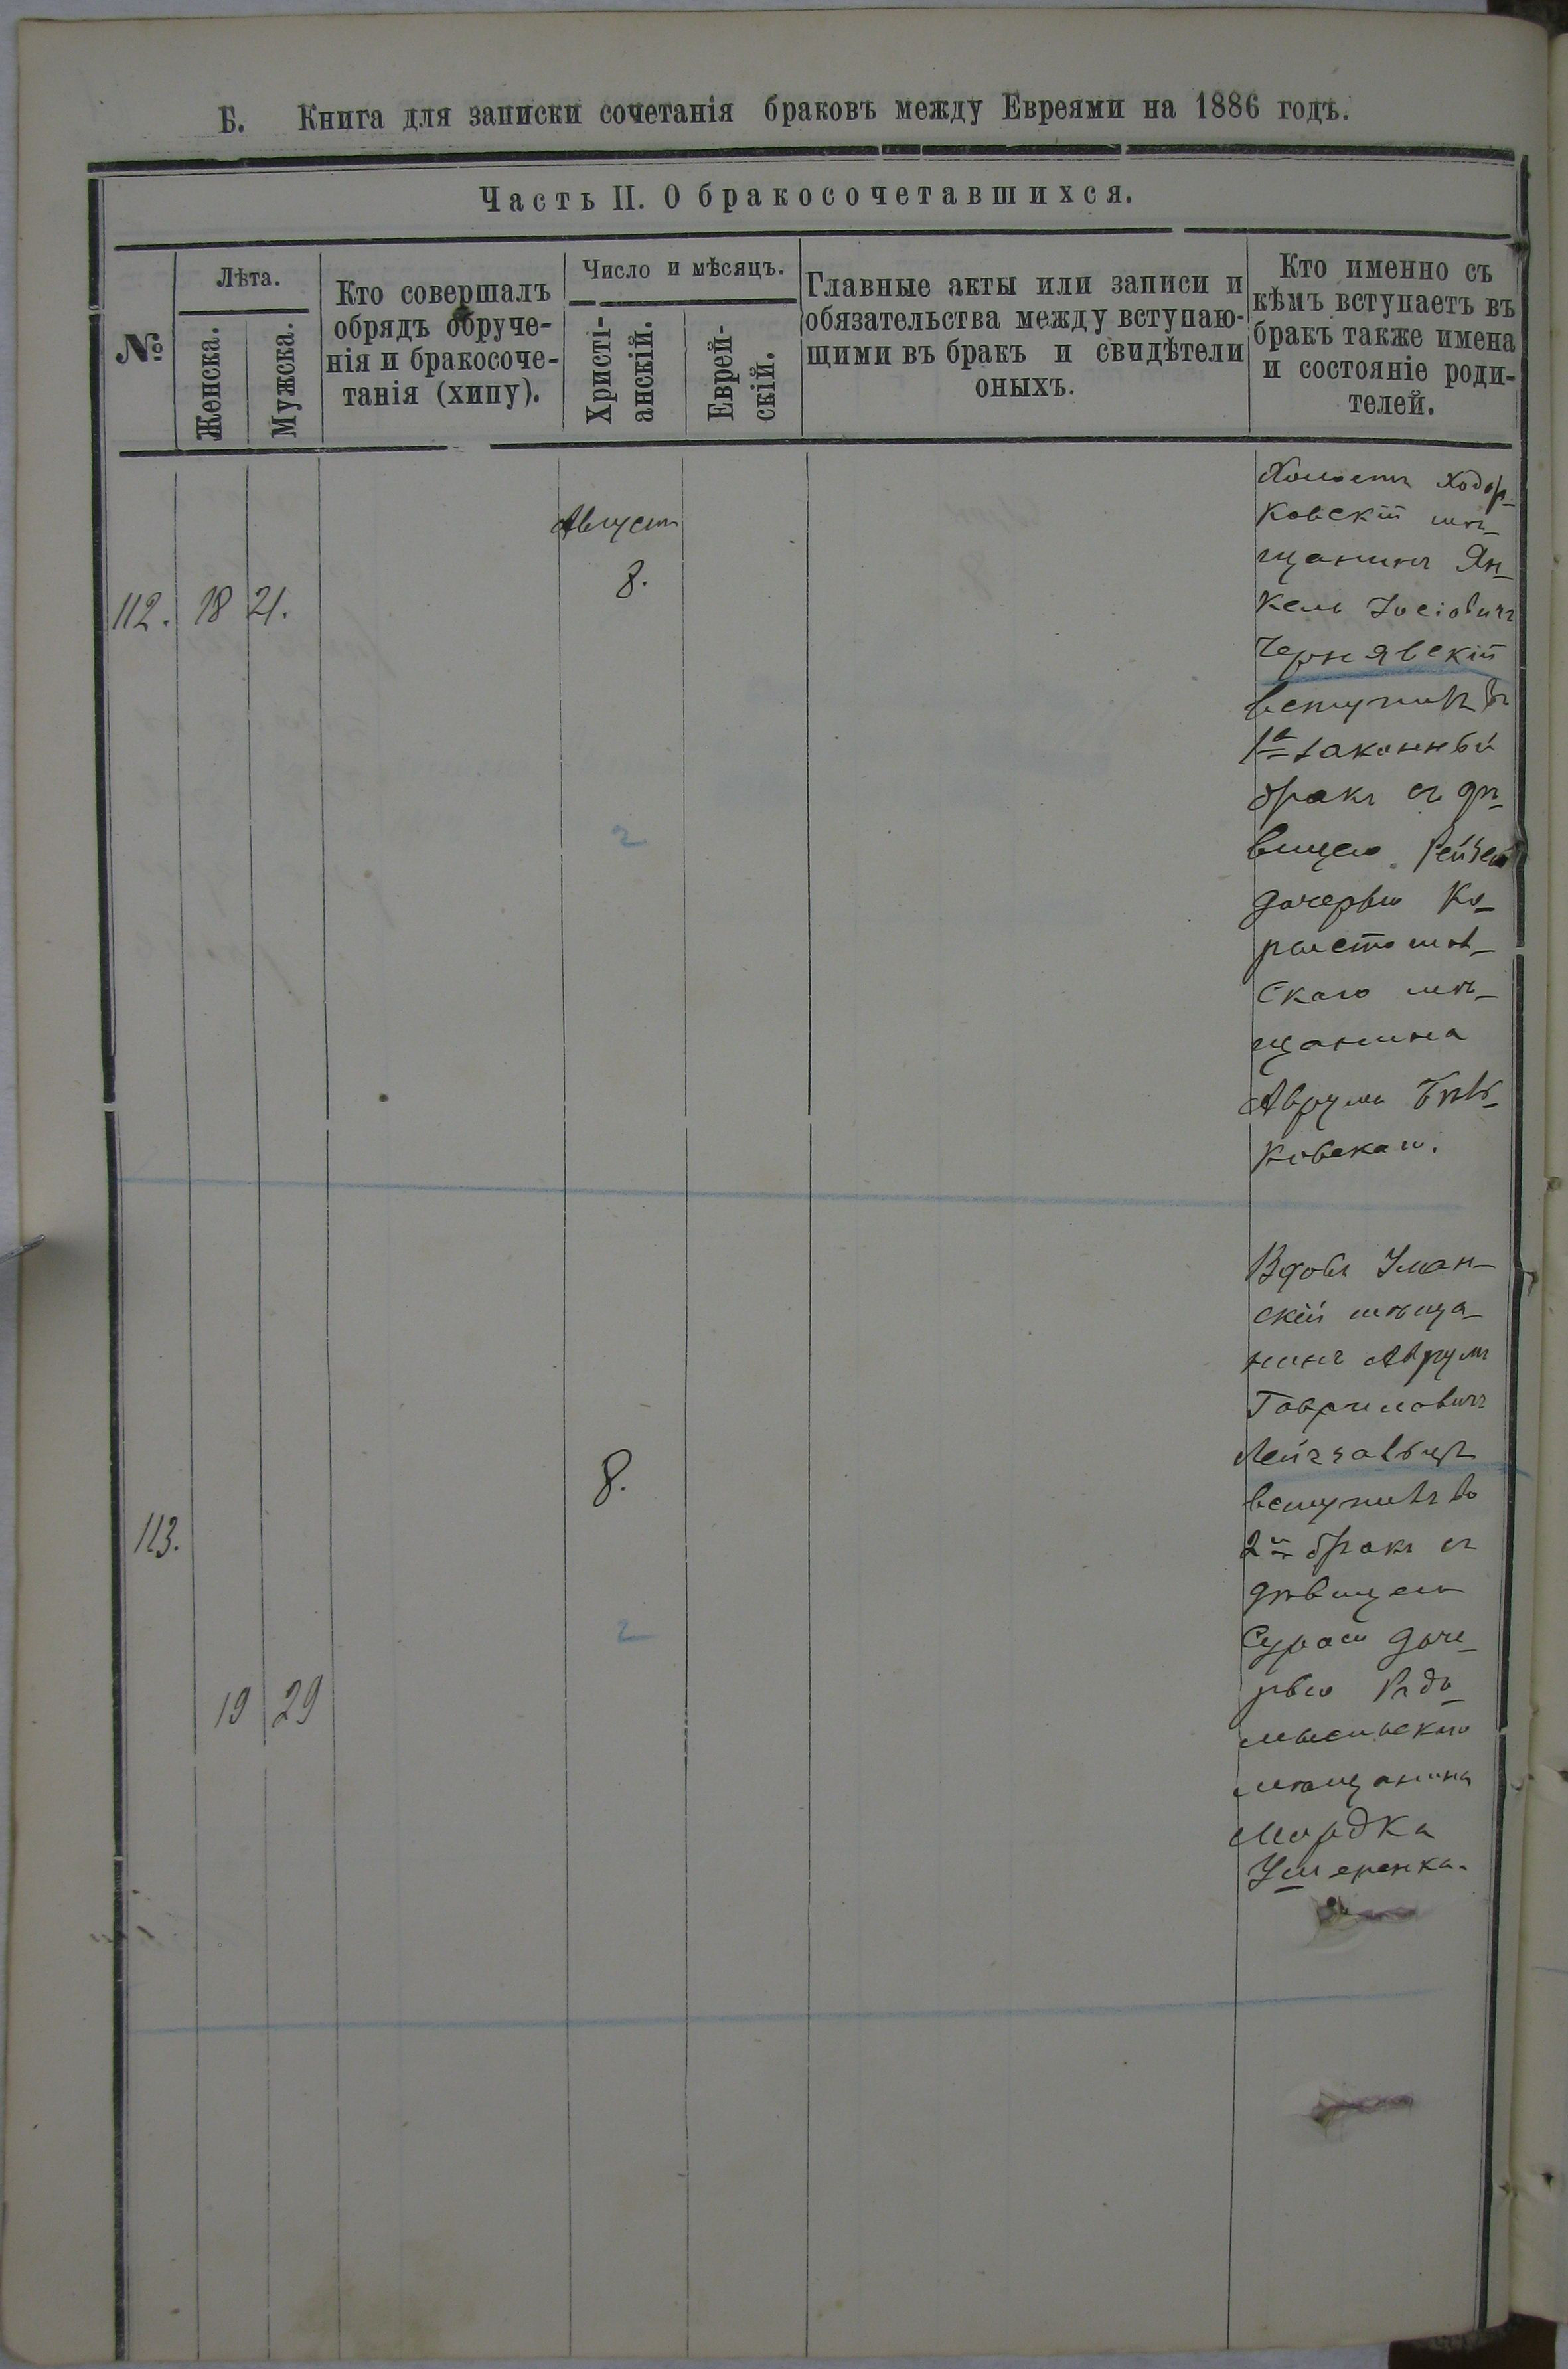 Б. Книга для записки сочетанія браковъ между Евреями на 1886 годъ.
Часть II. О бракосочетавшихся.
№
Лѣта.
Женска.
Мужска.
Кто совершалъ
обрядъ обруче-
нія и бракосоче-
танія (хипу).
Число и мѣсяцъ.
Христі-
анскій.
Еврей-
скій.
Главные акты или записи и
обязательства между вступаю-
щими въ бракъ и свидѣтели
оныхъ.
Кто именно съ
кѣмъ вступаетъ въ
бракъ также имена
и состояніе роди-
телей.
112. 18 21.
Августъ
8.
2
Холостъ Ходор-
ковскій мѣ-
щанинъ Ян-
кель Іосіовичъ
Чернявскій
вступилъ въ
1й законный
бракъ съ дѣ-
вицею Рейзею
дочерью Ко-
ростышев-
скаго мѣ-
щанина
Аврума Бѣл-
ковскаго.
113.
19 29
8.
2
Вдовъ Уман-
скій мѣща-
нинъ Аврумъ
Гавриловичъ
вступилъ во
2й бракъ съ
дѣвицею
Сурою доче-
рью Радо-
мысльскаго
мѣщанина
Мордка
Ушеренка.